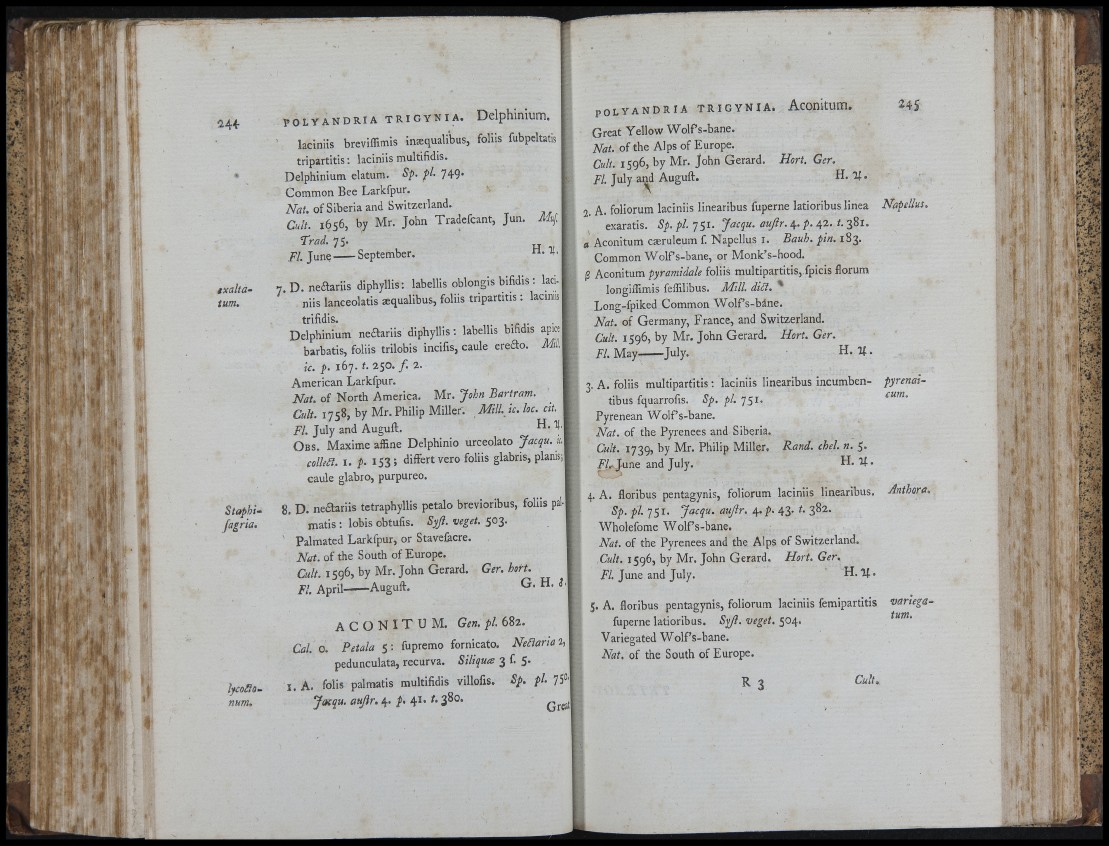 244 POLYANDRIA TRIGYNIA. Delphinium.
laciniis breviſſimis inæqualibus, foliis ſubpeltatis
tripartitis: laciniis multifidis.
Delphinium elatum. Sp. pl. 749.
Common Bee Larkſpur.
Nat. of Siberia and Switzerland.
Cult. 1656, by Mr. John Tradeſcant, Jun. Muſ.
Trad. 75.
Fl. June——September. H. ♃.
exalta-
tum.
7. D. nectariis diphyllis: labellis oblongis bifidis: laci-
niis lanceolatis æqualibus, foliis tripartitis: laciniis
trifidis.
Delphinium nectariis diphyllis: labellis bifidis apice
barbatis, foliis trilobis inciſis, caule erecto. Mill.
ic. p. 167. t. 250. f. 2.
American Larkſpur.
Nat. of North America. Mr. John Bartram.
Cult. 1758, by Mr. Philip Miller. Mill. ic. loc. cit.
Fl. July and Auguſt. H. ♃.
OBS. Maxime affine Delphinio urceolato Jacqu. ic.
collect. 1. p. 153; differt vero foliis glabris, planis;
caule glabro, purpureo.
Staphi-
ſagria.
8. D. nectariis tetraphyllis petalo brevioribus, foliis pal-
matis: lobis obtuſis. Syſt. veget. 503.
Palmated Larkſpur, or Staveſacre.
Nat. of the South of Europe.
Cult. 1596, by Mr. John Gerard. Ger. hort.
Fl. April——Auguſt. G. H. ♂.
ACONITUM. Gen. pl. 682.
Cal. 0. Petala 5: ſupremo fornicato. Nectaria 2,
pedunculata, recurva. Siliquæ 3 ſ. 5.
lycocto-
num.
1. A. folis palmatis multifidis villoſis. Sp. pl. 750.
Jacqu. auſtr. 4. p. 41. t. 380.
Great
POLYANDRIA TRIGYNIA. Aconitum. 245
Great Yellow Wolf's-bane.
Nat. of the Alps of Europe.
Cult. 1596, by Mr. John Gerard. Hort. Ger.
Fl. July and Auguſt. H. ♃.
2. A. foliorum laciniis linearibus ſuperne latioribus linea
exaratis. Sp. pl. 751. Jacqu. auſtr. 4. p. 42. t. 381.
Napellus.
α Aconitum cæruleum ſ. Napellus 1. Bauh. pin. 183.
Common Wolf's-bane, or Monk's-hood.
β Aconitum pyramidale foliis multipartitis, ſpicis florum
longiſſimis ſeſſilibus. Mill. dict.
Long-ſpiked Common Wolf's-bane.
Nat. of Germany, France, and Switzerland.
Cult. 1596, by Mr. John Gerard. Hort. Ger.
Fl. May——July. H. ♃.
3. A. foliis multipartitis: laciniis linearibus incumben-
tibus ſquarroſis. Sp. pl. 751.
pyrenai-
cum.
Pyrenean Wolf's-bane.
Nat. of the Pyrenees and Siberia.
Cult. 1739, by Mr. Philip Miller. Rand. chel. n. 5.
Fl. June and July. H. ♃.
4. A. floribus pentagynis, foliorum laciniis linearibus.
Anthora.
Sp. pl. 751. Jacqu. auſtr. 4. p. 43. t. 382.
Wholeſome Wolf's-bane.
Nat. of the Pyrenees and the Alps of Switzerland.
Cult. 1596, by Mr. John Gerard. Hort. Ger.
Fl. June and July. H. ♃.
5. A. floribus pentagynis, foliorum laciniis ſemipartitis
ſuperne latioribus. Syſt. veget. 504.
variega-
tum.
Variegated Wolf's-bane.
Nat. of the South of Europe.
R 3 Cult.